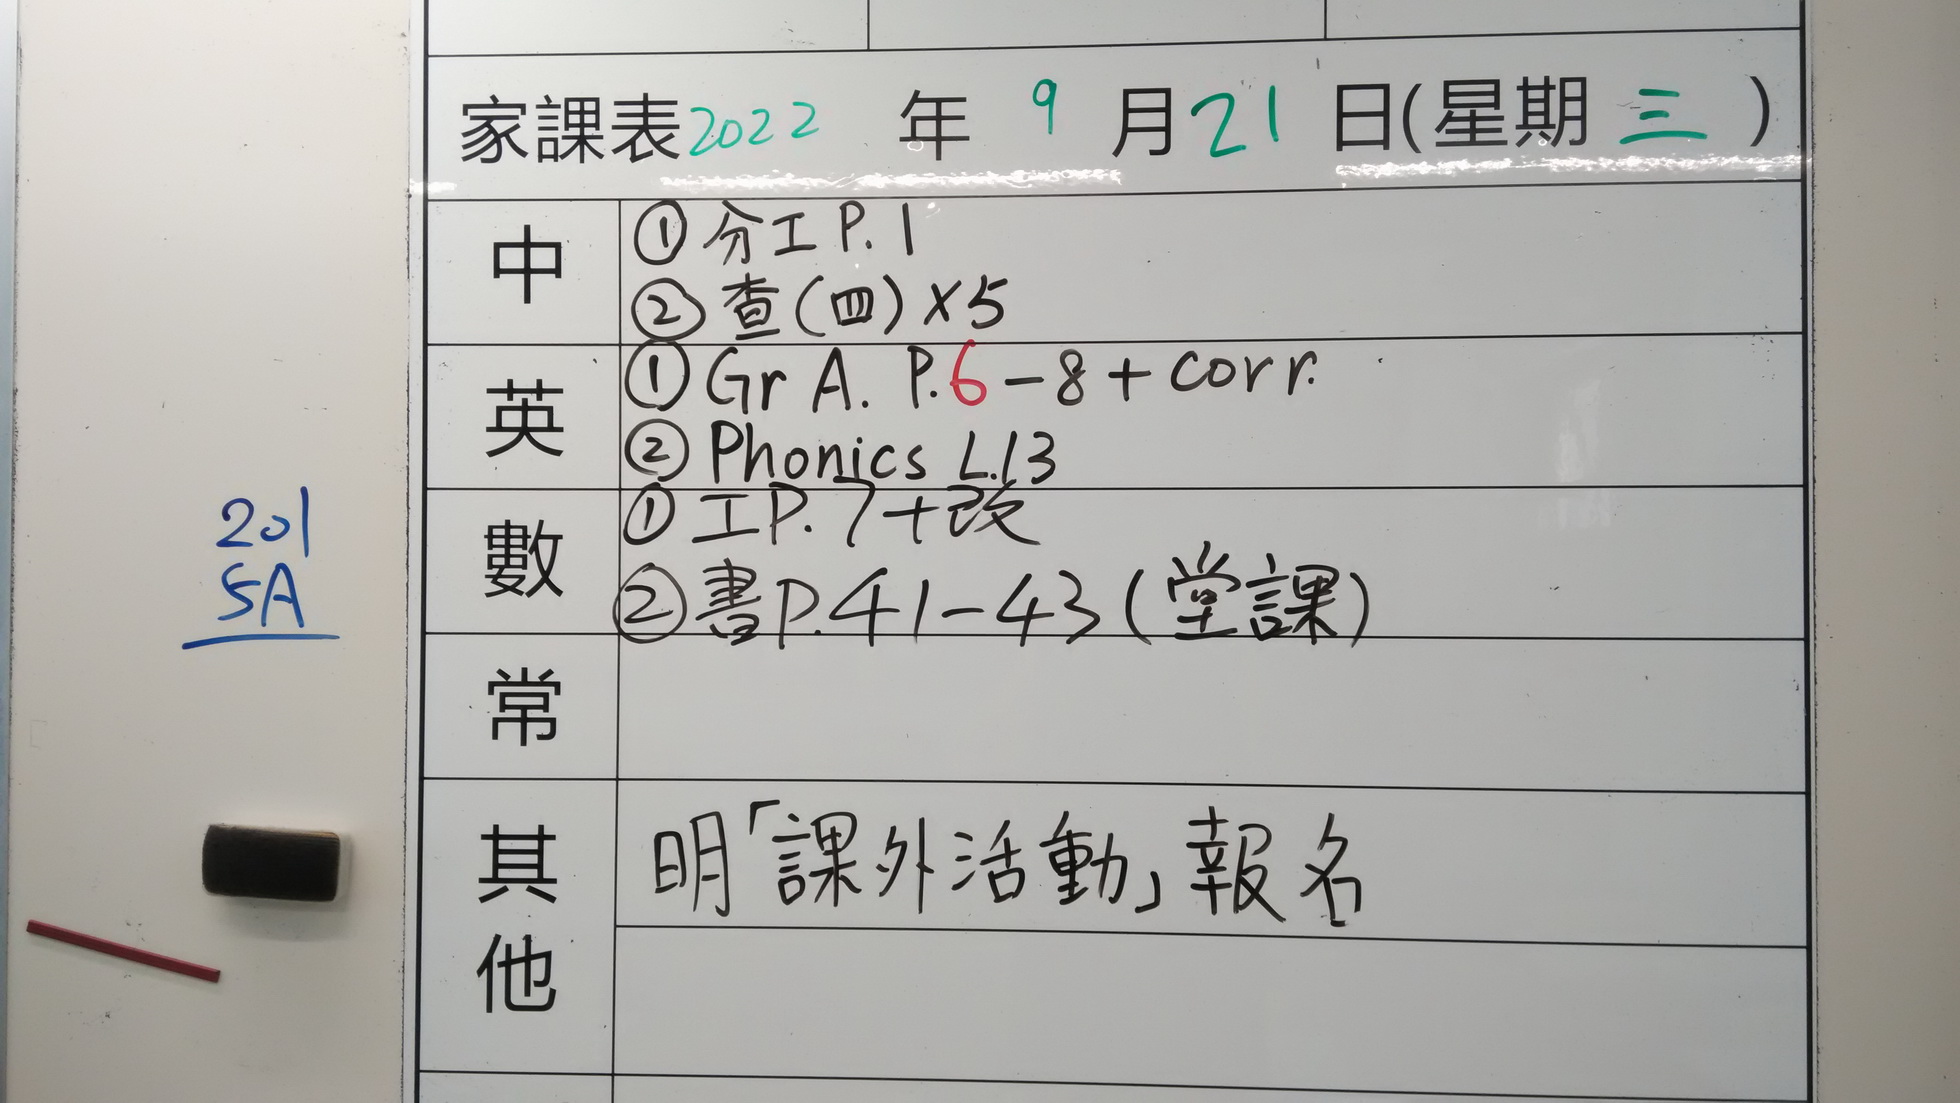 家課表2022 年 9 月 21 日(星期 三 )
中
① 分工 P. 1
② 查(四) X5
英
① Gr A. P.6-8 + corr.
② Phonics L.13
數
① 工P. 7+改
② 書P.41-43(堂課)
常
其他
明「課外活動」報名
201
5A